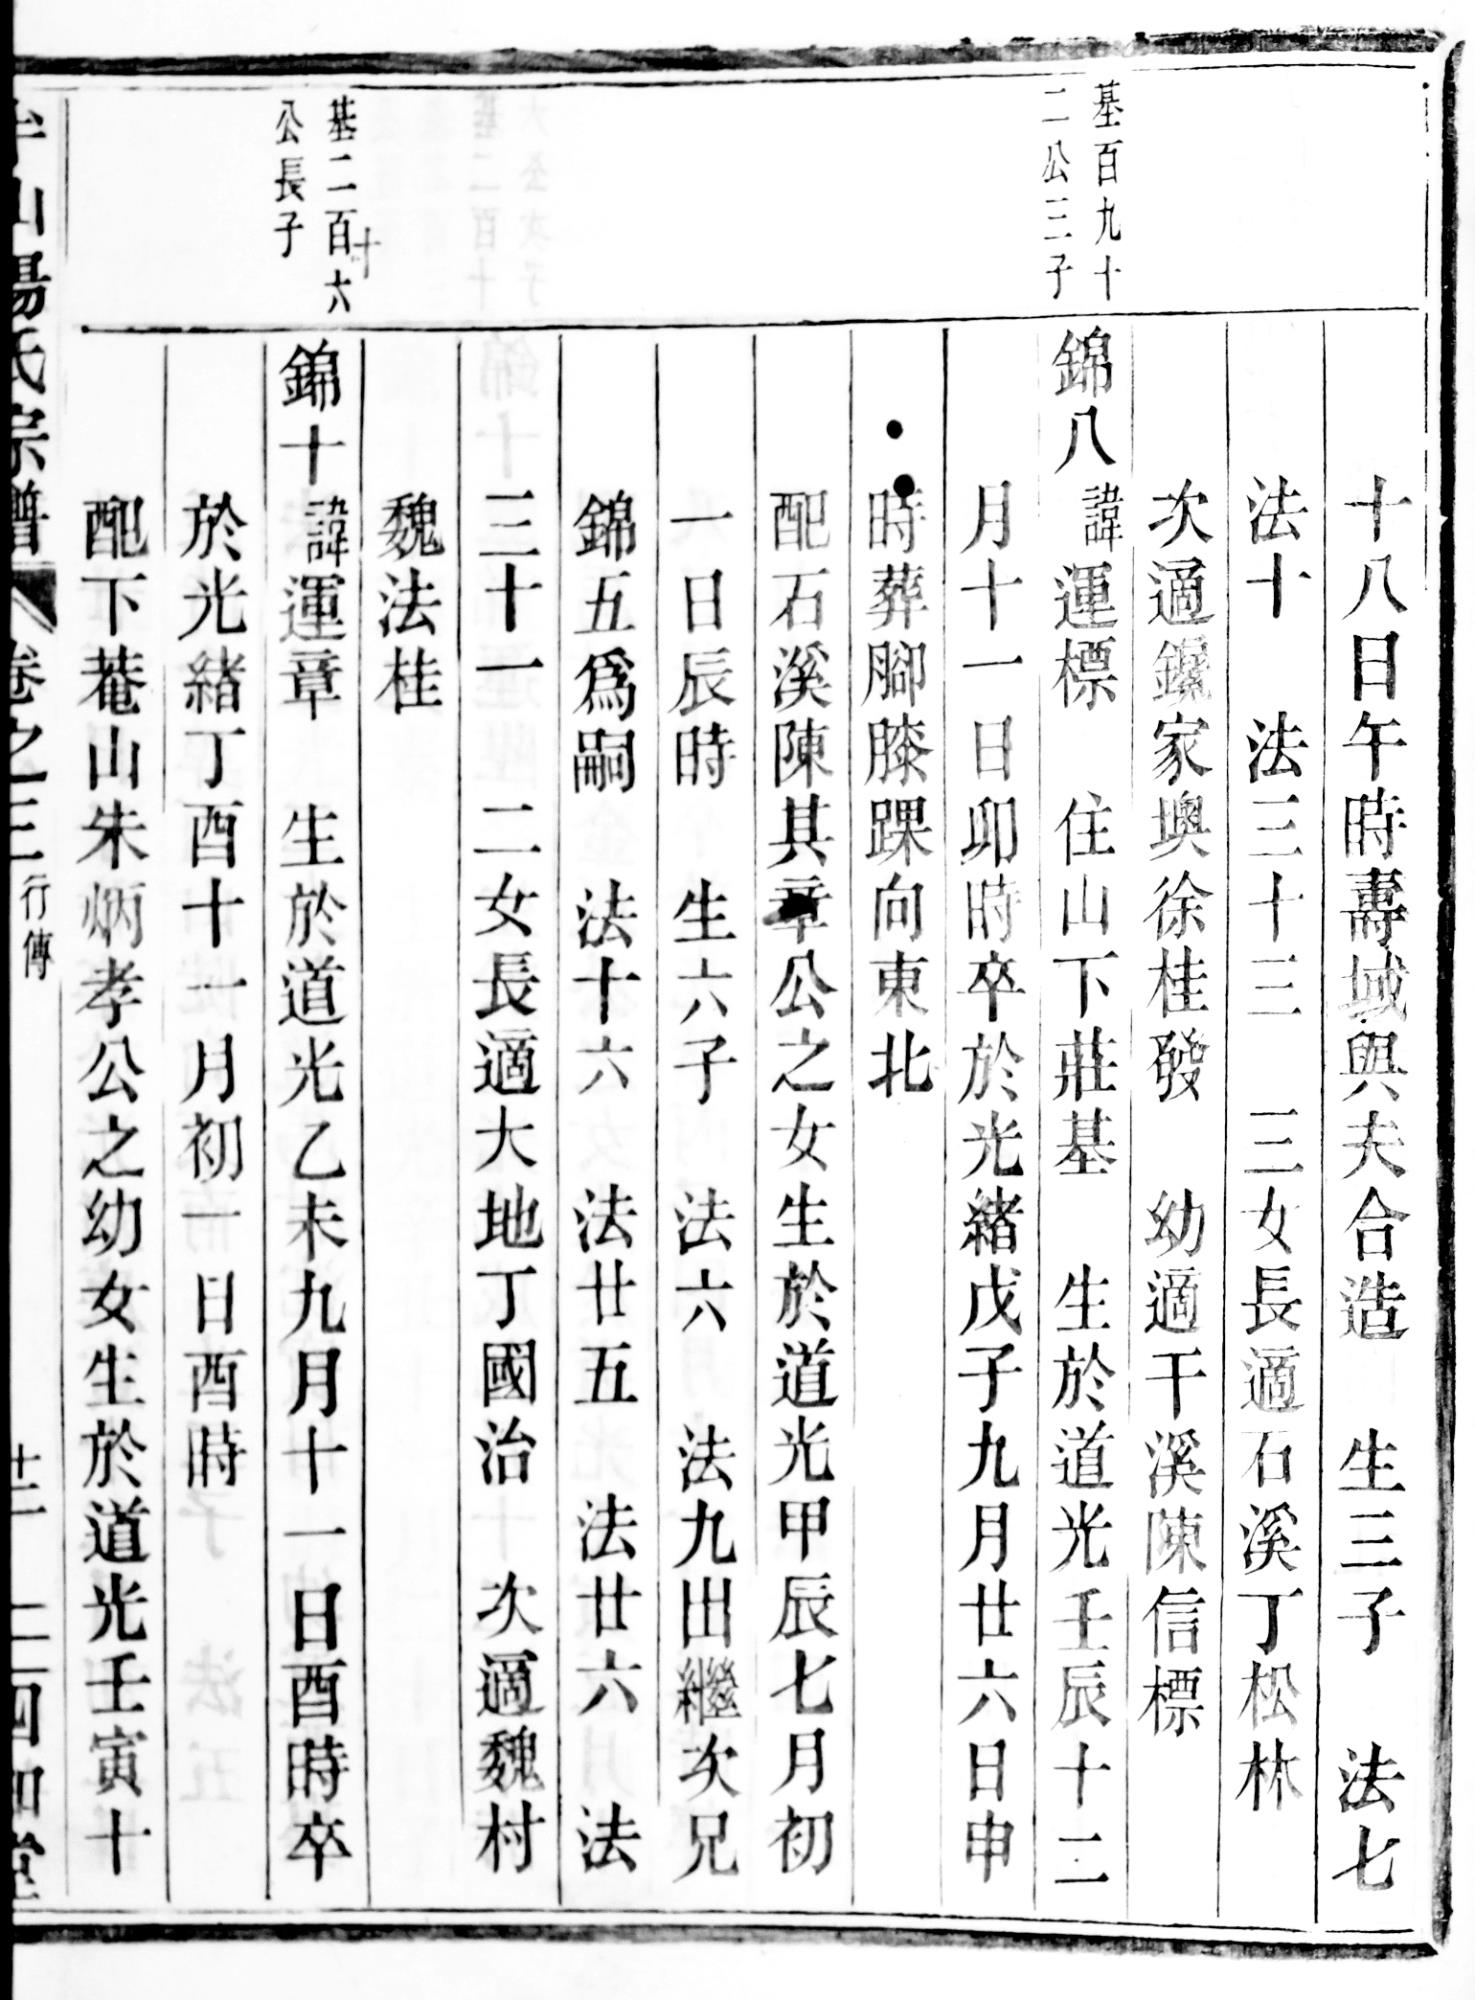 十八日午時壽域與夫合造　生三子　法七
法十　法三十三　三女長適石溪丁松林
次適鑼家墺徐桂發　幼適干溪陳信標
基百九十
二公三子
錦八諱運標　住山下莊基　生於道光壬辰十二
月十一日卯時卒於光緒戊子九月廿六日申
時葬腳膝踝向東北
配石溪陳其章公之女生於道光甲辰七月初
一日辰時　生六子　法六　法九出繼次兄
錦五爲嗣　法十六　法廿五　法廿六　法
三十一　二女長適大地丁國治　次適魏村
魏法桂
基二百十六
公長子
錦十諱運章　生於道光乙未九月十一日酉時卒
於光緒丁酉十一月初一日酉時
配下菴山朱炳孝公之幼女生於道光壬寅十
山湯氏宗譜　卷之三　行傳　四知堂